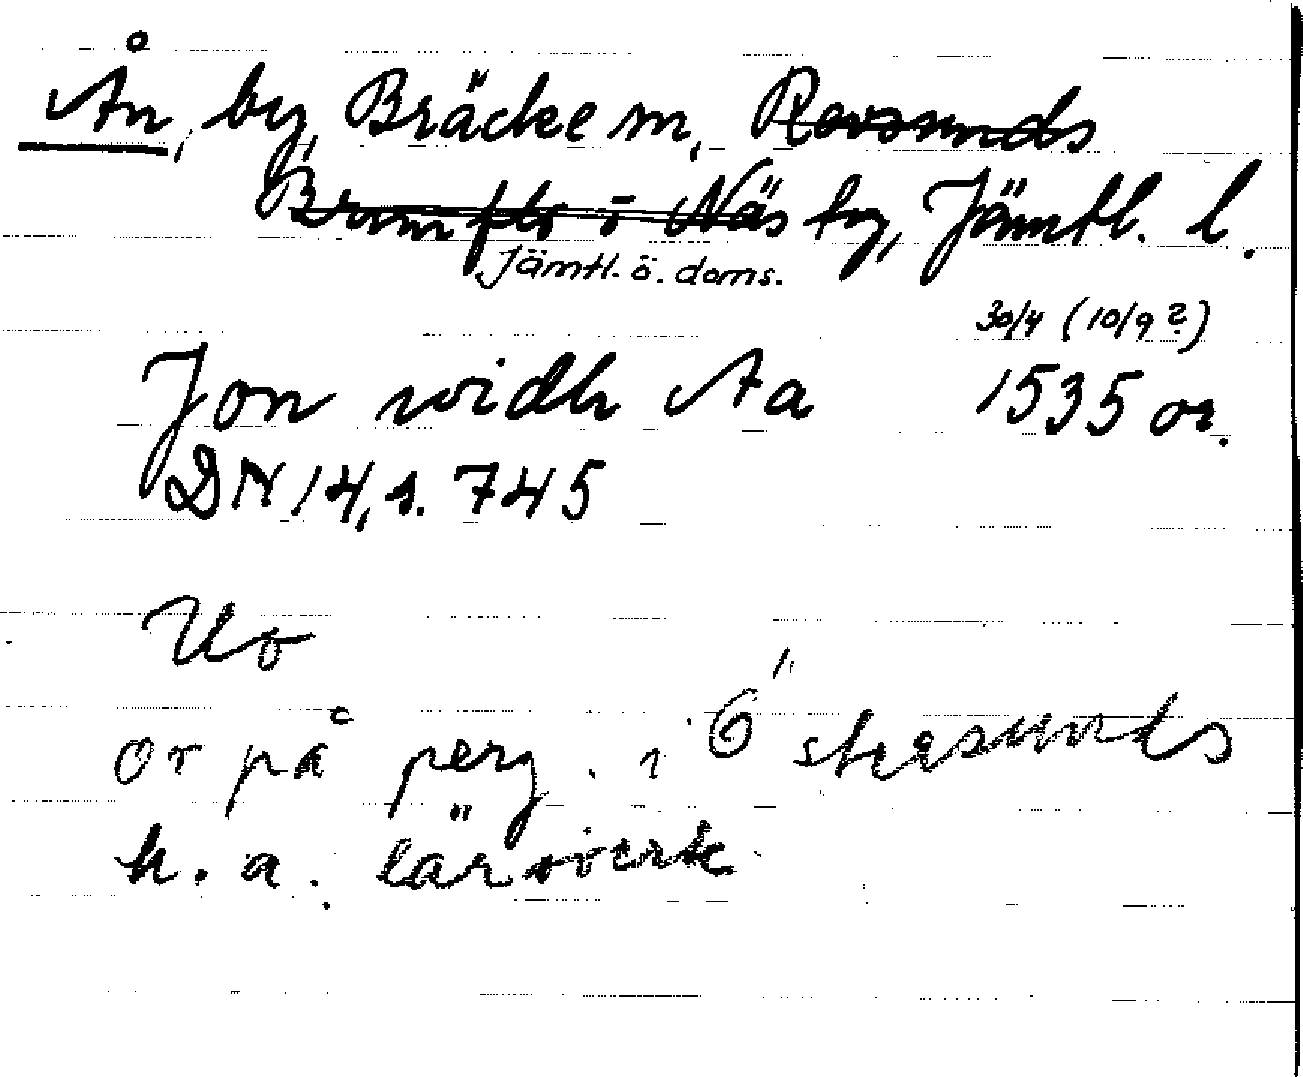 Ån, by, Bräcke sn, Revsunds
Brunflo o Näs tg, Jämtl. l.
Jämtl. ö. doms.
30/4 (10/9?)
Jon widh Aa 1535 or.
DN 14, s. 745
Uo
or på perg. i Östersunds
h. a. läroverk